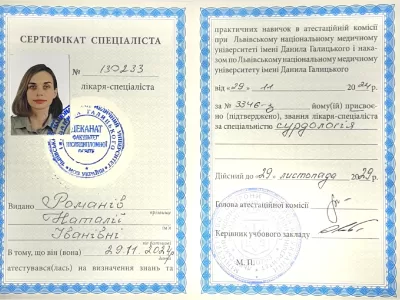 СЕРТИФІКАТ СПЕЦІАЛІСТА
№ 130233
лікаря-спеціаліста
ДЕКАНАТ
ФАКУЛЬТЕТ
ПІСЛЯДИПЛОМНОЇ
ОСВІТИ
Видано Романів
прізвище
Наталії
ім'я
Іванівні
по батькові
В тому, що він (вона) 29.11 2024р
атестувався(лась) на визначення знань та
практичних навичок в атестаційній комісії
при Львівському національному медичному
університеті імені Данила Галицького і нака-
зом по Львівському національному медичному
університету імені Данила Галицького
від «29» 11 2024р.
за № 3346-з йому(їй) присвоє-
но (підтверджено), звання лікаря-спеціаліста
за спеціальністю сурдологія
Дійсний до «29» листопада 2029р.
Голова атестаційної комісії
Керівник учбового закладу
М. П.